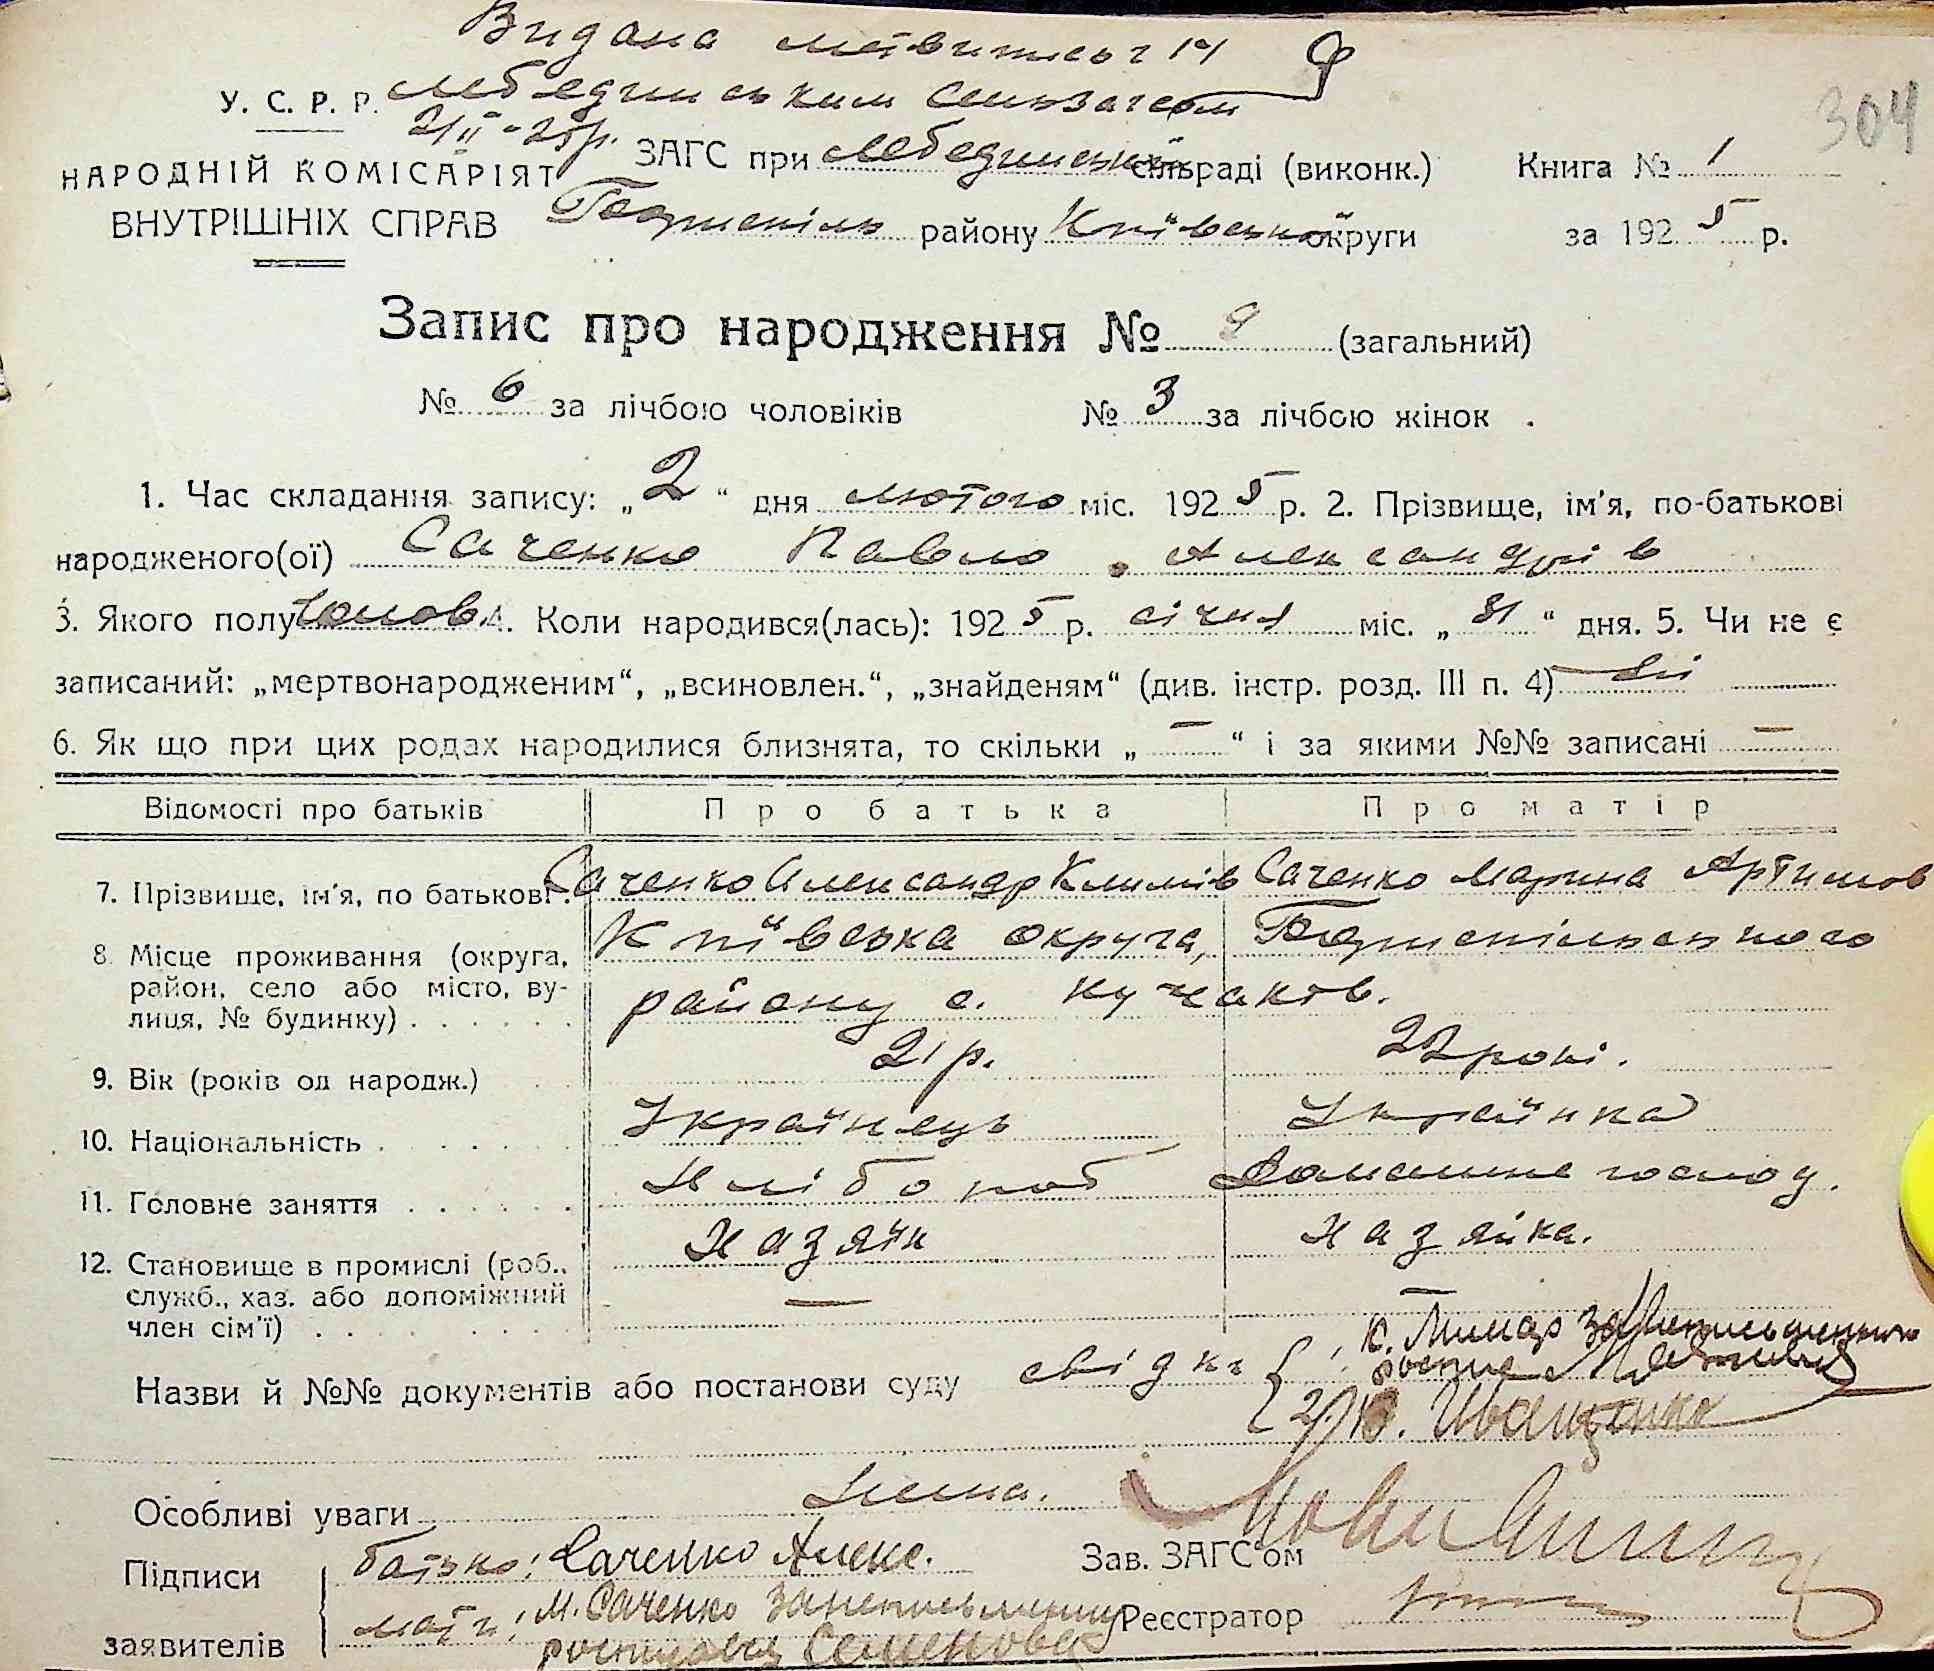 Видана
У. С. Р. Р. Лебединським
304
2/II-25р.
ЗАГС при Лебединській сільраді (виконк.) Книга № 1
НАРОДНІЙ КОМІСАРІЯТ
ВНУТРІШНІХ СПРАВ Бориспіль району Київської округи за 192 5 р.
Запис про народження № 9 (загальний)
№ 6 за лічбою чоловіків № 3 за лічбою жінок .
1. Час складання запису: „ 2 “ дня лютого міс. 192 5 р. 2. Прізвище, ім'я, по-батькові
народженого(ої) Саченко Павло Александрів
3. Якого полу Чолов. 4. Коли народився(лась): 192 5 р. січня міс. „ 31 “ дня. 5. Чи не є
записаний: „мертвонародженим“, „всиновлен.“, „знайденям“ (див. інстр. розд. III п. 4) ні
6. Як що при цих родах народилися близнята, то скільки „ — “ і за якими №№ записані —
Відомості про батьків Про батька Про матір
7. Прізвище, ім'я, по батькові . Саченко Александр Климів Саченко Марина Артимов
8. Місце проживання (округа, Київська округа, Бориспільського
район, село або місто, ву- району с. Кучаків.
лиця, № будинку) . . . . . .
9. Вік (років од народж.) 21 р. 22 рокі.
10. Національність . . . . . Українець Українка
11. Головне заняття . . . . . . Хлібороб Домашнє господ.
12. Становище в промислі (роб., Хазяїн Хазяйка.
служб., хаз. або допоміжний — —
член сім'ї) . . . . . . .
Назви й №№ документів або постанови суду свідки { 1. К. Лимар за
2) Ю. Иващенко
Особливі уваги Нема.
Підписи батько: Саченко Алекс. Зав. ЗАГС'ом
заявителів мати: М. Саченко Реєстратор
Семенова